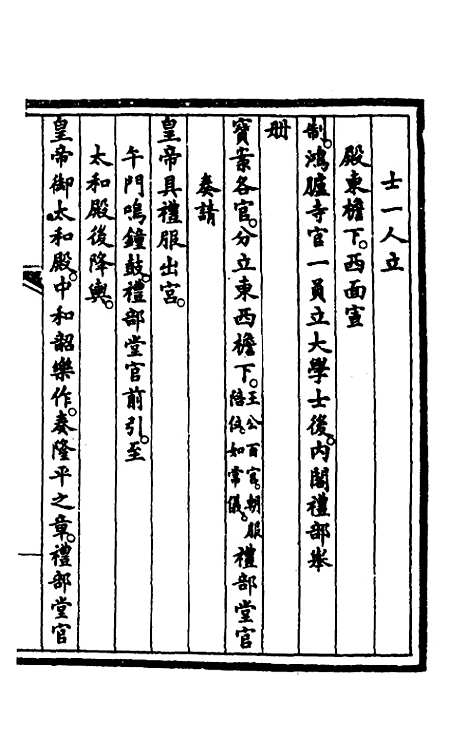 士一人立
殿東檐下。西面宣
制。鴻臚寺官一員立大學士後。内閣禮部舉
册
寶案各官。分立東西檐下。王公百官。朝服陪位。如常儀。禮部堂官
奏請
皇帝具禮服出宮。
午門鳴鐘鼓。禮部堂官前引。至
太和殿後降輿。
皇帝御太和殿。中和韶樂作。奏隆平之章。禮部堂官